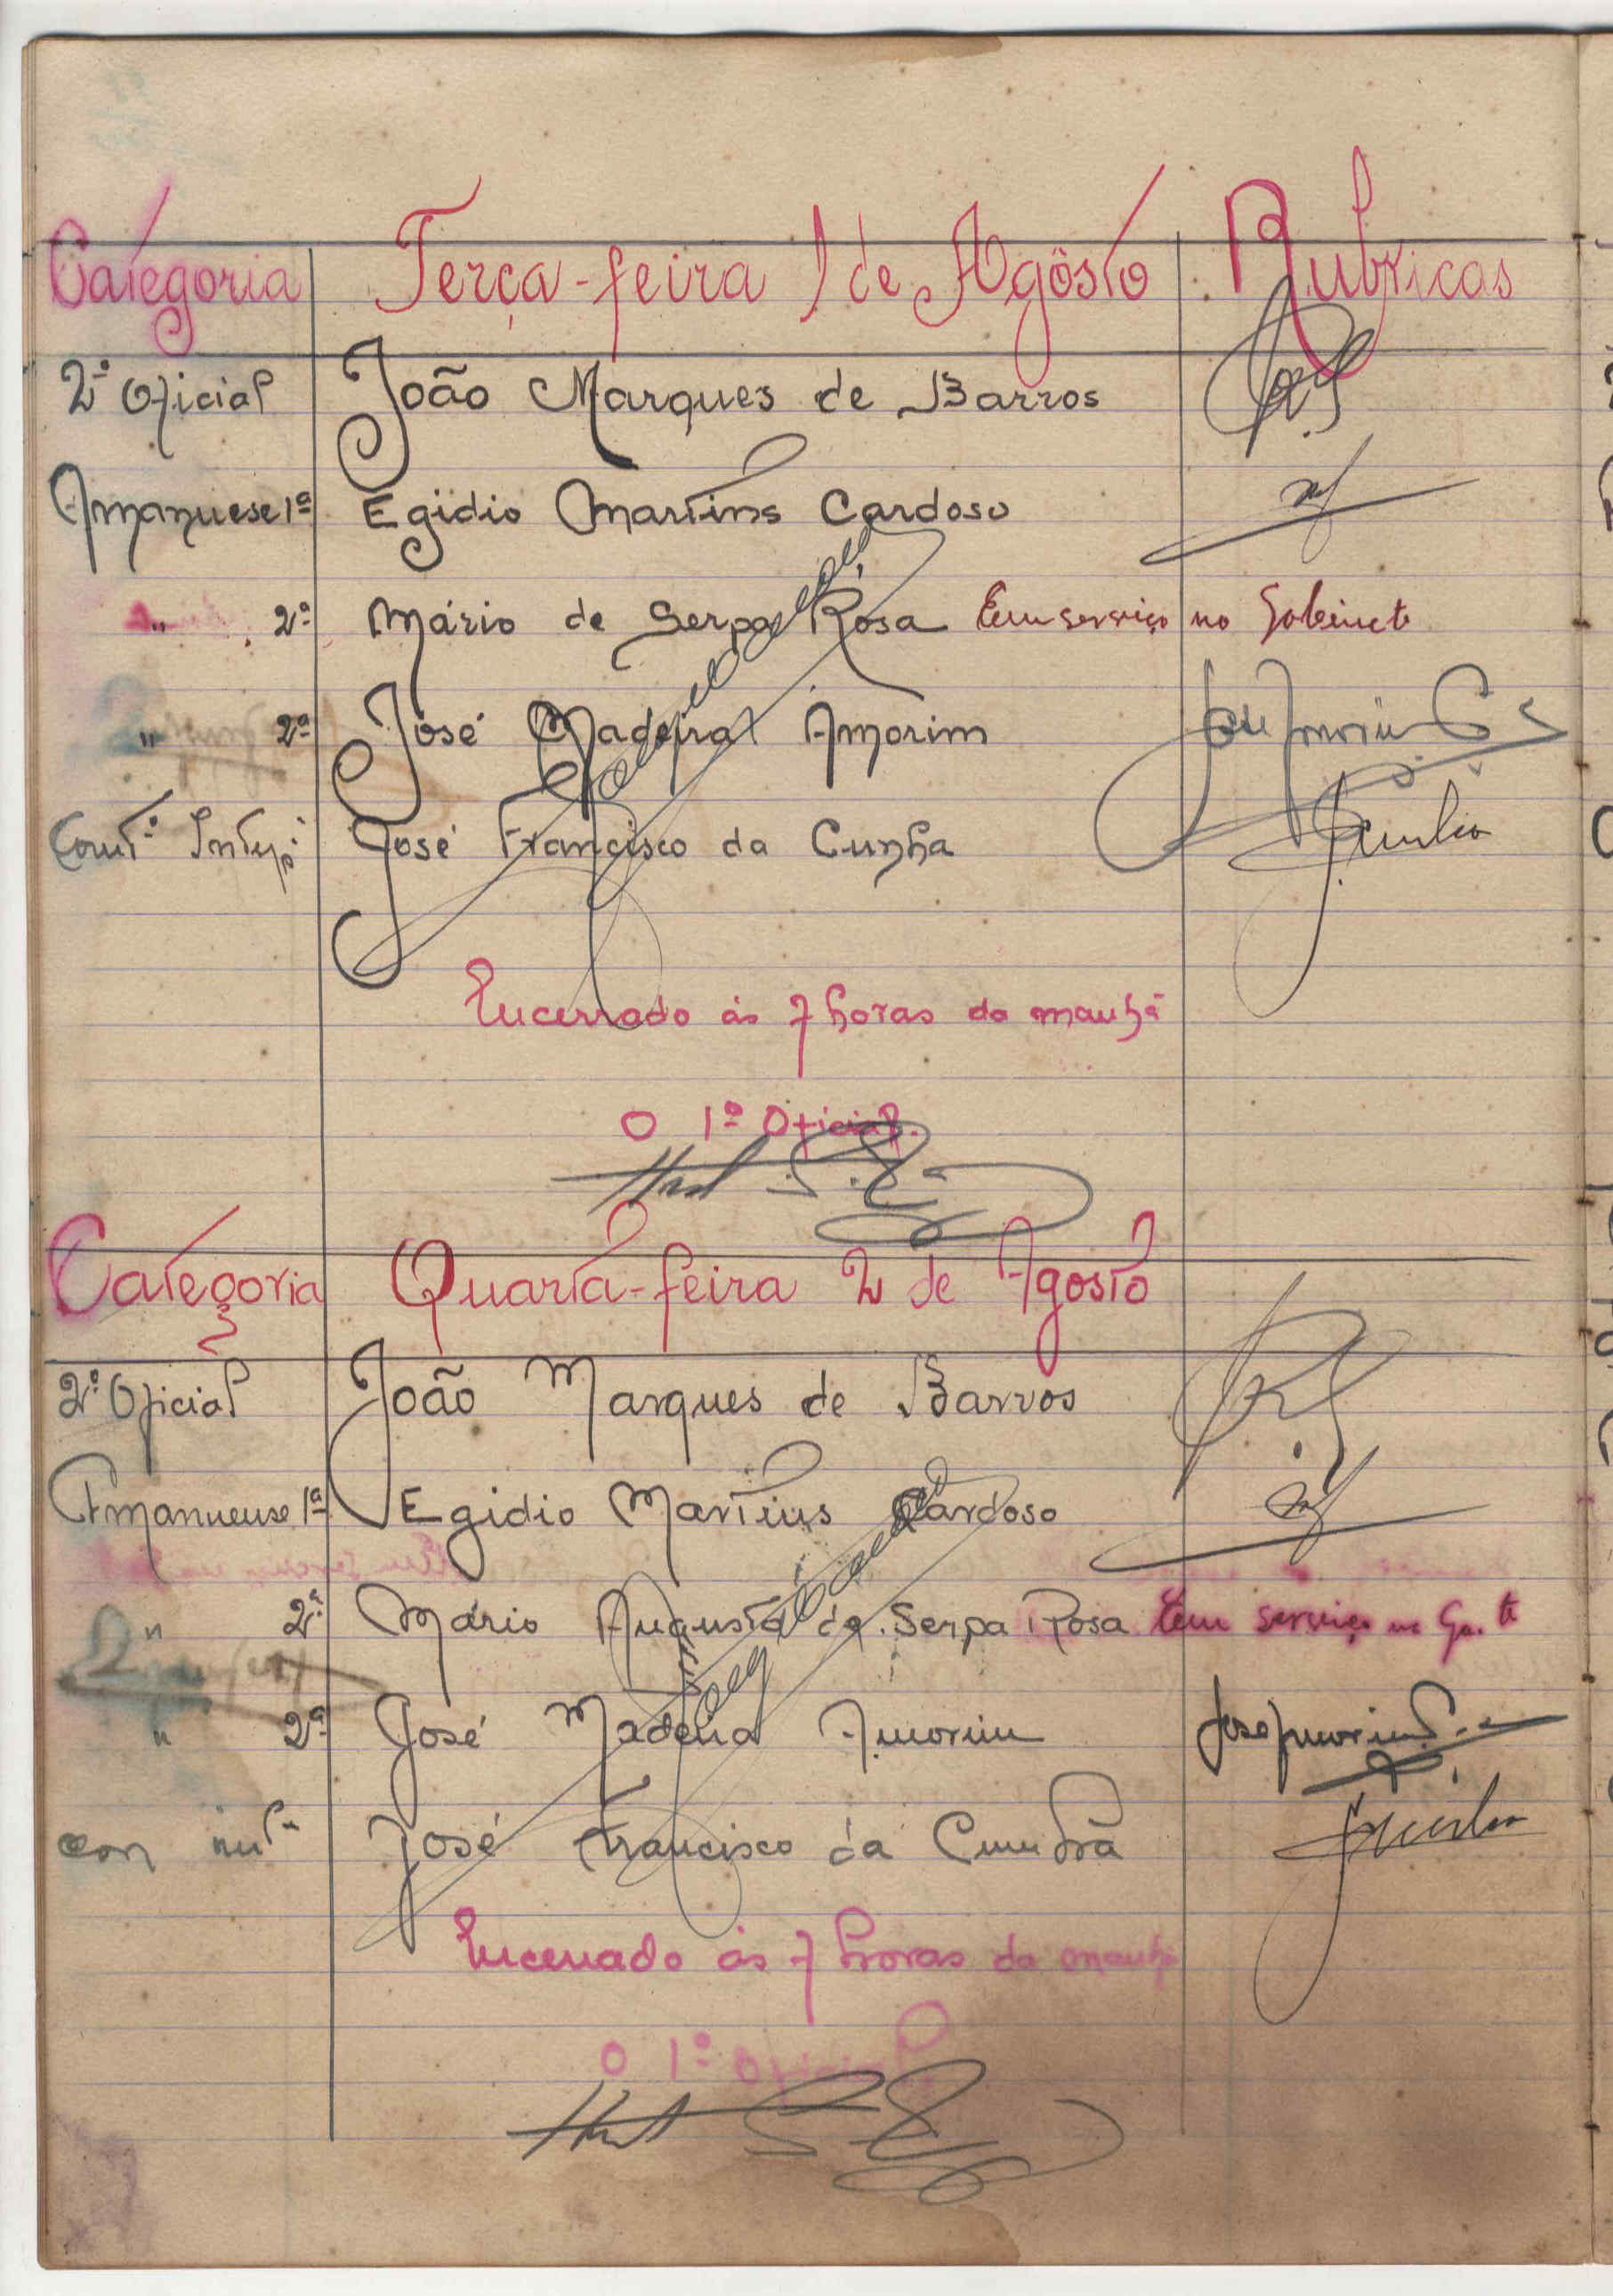 Categoria Terça-feira 1 de Agôsto Rubricas
2º Oficial João Marques de Barros
Amanuese 1ª Egidio Martins Cardoso
" 2ª Mário de Serpa Rosa Tem serviço no Gabinete
" 2ª José Madeira Amorim José Amorim
José Francisco da Cunha JCunha
Encerrado ás 7 horas da manhã
O 1º Oficial.
Categoria Quarta-feira 2 de Agosto
2º Oficial João Marques de Barros
Amanuense 1ª Egidio Martins Cardoso
" 2ª Mário Augusto de Serpa Rosa Tem serviço no Ga.te
" 2ª José Madeira Amorim José Amorim
José Francisco da Cunha JCunha
Encerrado ás 7 horas da manhã
O 1º Oficial